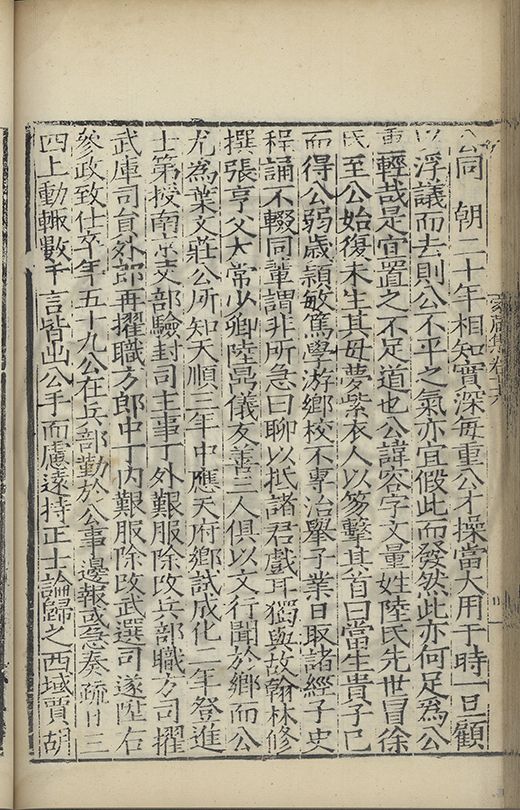 公同 朝二十年相知實深每重公才操當大用于時一旦顧
以浮議而去則公不平之氣亦宜假此而發然此亦何足為公
重輕哉是宜置之不足道也公諱容字文量姓陸氏先世冒徐
氏至公始復未生其母夢紫衣人以笏擊其首曰當生貴子已
而得公弱歲穎敏篤學游鄉校不專治舉子業日取諸經子史
程誦不輟同輩謂非所急曰聊以抵諸君戲耳獨與故翰林修
撰張亨父太常少卿陸鼎儀友善三人俱以文行聞於鄉而公
尤為葉文莊公所知天順三年中應天府鄉試成化二年登進
士第授南京吏部驗封司主事丁外艱服除改兵部職方司擢
武庫司員外郎再擢職方郎中丁內艱服除改武選司遂陞右
參政致仕卒年五十九公在兵部勤於公事邊報或急奏疏日三
四上動輒數千言皆出公手而慮遠持正士論歸之西域賈胡
家藏集卷七十六